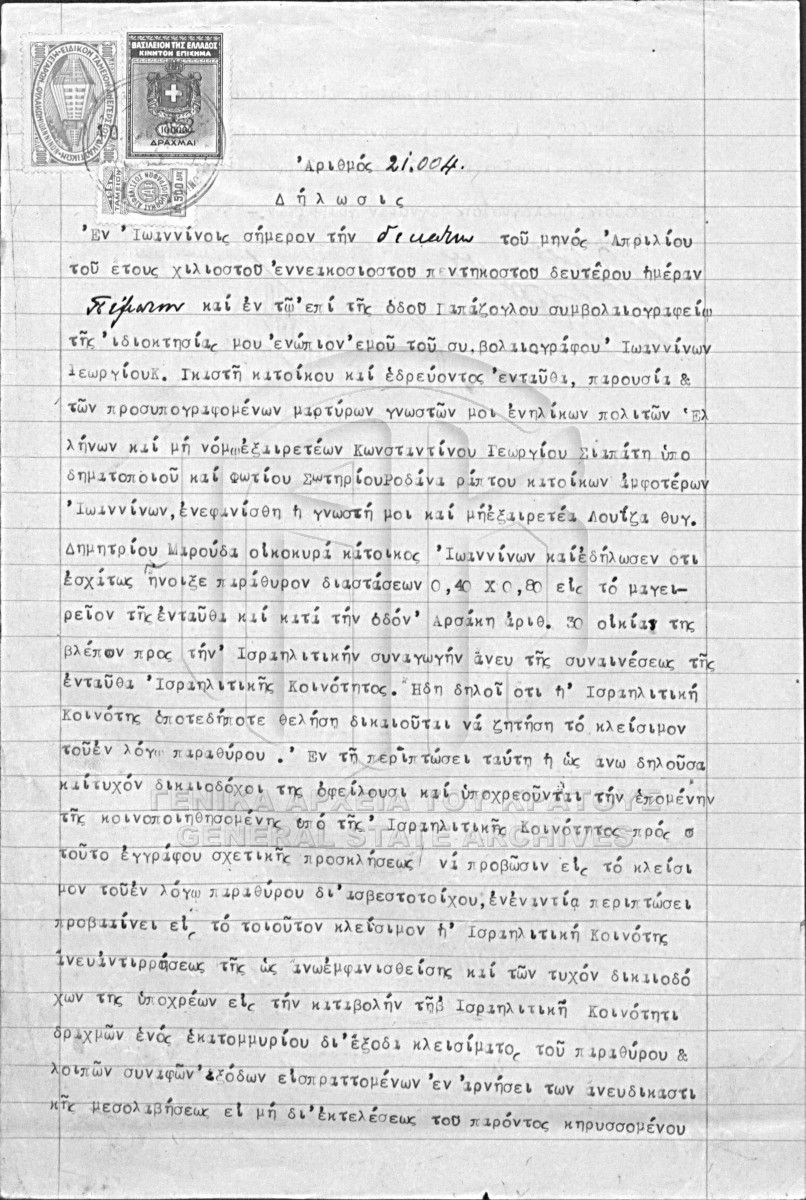 ΒΑΣΙΛΕΙΟΝ ΤΗΣ ΕΛΛΑΔΟΣ
ΚΙΝΗΤΟΝ ΕΠΙΣΗΜΑ
10000
ΔΡΑΧΜΑΙ
Ἀριθμός 21.004.
Δήλωσις
Ἐν Ἰωαννίνοις σήμερον τήν δεκάτην τοῦ μηνός Ἀπριλίου
τοῦ ἔτους χιλιοστοῦ ἐννεακοσιοστοῦ πεντηκοστοῦ δευτέρου ἡμέραν
Πέμπτην καί ἐν τῷ ἐπί τῆς ὁδοῦ Παπάζογλου συμβολαιογραφείῳ
τῆς ἰδιοκτησίας μου ἐνώπιον ἐμοῦ τοῦ συ,βολαιογράφου Ἰωαννίνων
Γεωργίου Κ. Ικαστῆ κατοίκου καί ἑδρεύοντος ἐνταῦθα, παρουσία &
τῶν προσυπογραφομένων μαρτύρων γνωστῶν μοι ἐνηλίκων πολιτῶν Ἑλ
λήνων καί μή νόμῳ ἐξαιρετέων Κωνσταντίνου Γεωργίου Σιαπάτη ὑπο
δηματοποιοῦ καί Φωτίου Σωτηρίου Ροδίνα ράπτου κατοίκων ἀμφοτέρων
Ἰωαννίνων, ἐνεφανίσθη ἡ γνωστή μοι καί μή ἐξαιρετέα Λουΐζα θυγ.
Δημητρίου Μαρούδα οἰκοκυρά κάτοικος Ἰωαννίνων καί ἐδήλωσεν ὅτι
ἐσχάτως ἤνοιξε παράθυρον διαστάσεων 0,40 Χ 0,80 εἰς τό μαγει-
ρεῖον τῆς ἐνταῦθα καί κατά τήν ὁδόν Ἀρσάκη ἀριθ. 30 οἰκίας της
βλέπον προς τήν Ἰσραηλιτικήν συναγωγήν ἄνευ τῆς συναινέσεως τῆς
ἐνταῦθα Ἰσραηλιτικῆς Κοινότητος. Ἤδη δηλοῖ ὅτι ἡ Ἰσραηλιτική
Κοινότης ὁποτεδήποτε θελήση δικαιοῦται νά ζητήση τό κλείσιμον
τοῦ ἐν λόγῳ παραθύρου. Ἐν τῇ περιπτώσει ταύτη ἡ ὡς ἄνω δηλοῦσα
καί τυχόν δικαιοδόχοι της ὀφείλουσι καί ὑποχρεοῦνται τήν ἑπομένην
τῆς κοινοποιηθησομένης ὑπό τῆς Ἰσραηλιτικῆς Κοινότητος πρός
τοῦτο ἐγγράφου σχετικῆς προσκλήσεως νά προβῶσιν εἰς τό κλείσι
μον τοῦ ἐν λόγῳ παραθύρου δι' ἀσβεστοτοίχου, ἐν ἐναντίᾳ περιπτώσει
προβαίνει εἰς τό τοιοῦτον κλείσιμον ἡ Ἰσραηλιτική Κοινότης
ἄνευ ἀντιρρήσεως τῆς ὡς ἄνω ἐμφανισθείσης καί τῶν τυχόν δικαιοδό
χων της ὑποχρέων εἰς τήν καταβολήν τῇ Ἰσραηλιτικῇ Κοινότητι
δραχμῶν ἑνός ἑκατομμυρίου δι' ἔξοδα κλεισίματος τοῦ παραθύρου &
λοιπῶν συναφῶν ἐξόδων εἰσπραττομένων ἐν ἀρνήσει των ἄνευ δικαστι
κῆς μεσολαβήσεως εἰ μή δι' ἐκτελέσεως τοῦ παρόντος κηρυσσομένου
ΓΕΝΙΚΑ ΑΡΧΕΙΑ ΤΟΥ ΚΡΑΤΟΥΣ
GENERAL STATE ARCHIVES